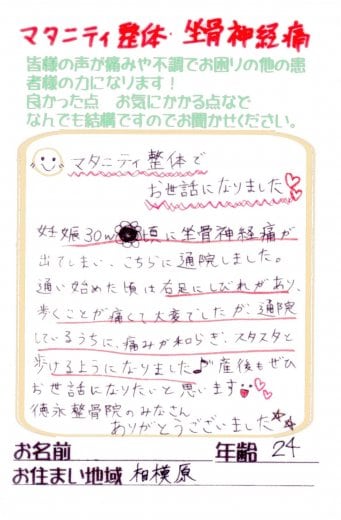 マタニティ整体 坐骨神経痛
皆様の声が痛みや不調でお困りの他の患
者様の力になります！
良かった点 お気にかかる点など
なんでも結構ですのでお聞かせください。
マタニティ整体で
お世話になりました
妊娠30w頃に坐骨神経痛が
出てしまい、こちらに通院しました。
通い始めた頃は右足にしびれがあり、
歩くことが痛くて大変でしたが、通院
しているうちに、痛みが和らぎ、スタスタと
歩けるようになりました♪産後もぜひ
お世話になりたいと思います
徳永整骨院のみなさん
ありがとうございました
お名前 年齢 24
お住まい地域 相模原